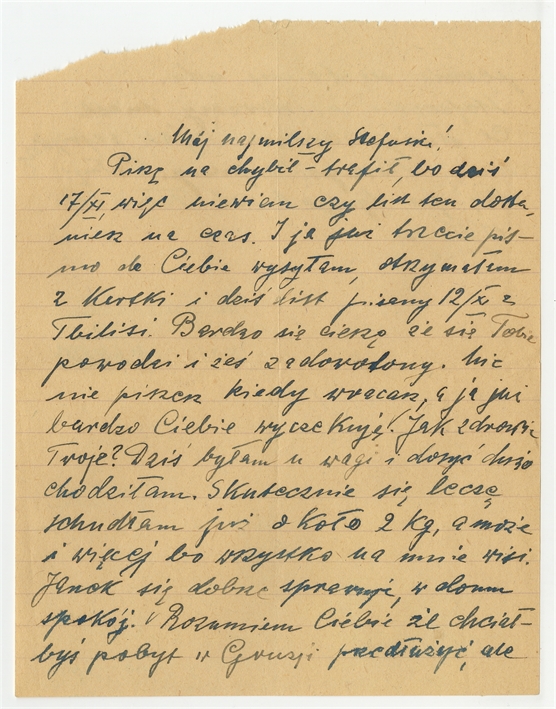 Mój najmilszy Stefuśki!
Piszę na chybił-trafił, bo dziś
17/XI, więc niewiem czy list ten dosta,
niesz na czas. I ja już trzecie pis-
mo do Ciebie wysyłam, otrzymałam
2 Kartki i dziś list pisany 12/XI z
Tbilisi. Bardzo się cieszę że się Tobie
powodzi i żeś zadowolony. Nic
nie piszesz kiedy wracasz, a ja już
bardzo Ciebie wyczekuję! Jak zdrowie
Twoje? Dziś byłam u wagi i dosyć dużo
chodziłam. Skutecznie się leczę
schudłam już około 2 kg, a może
i więcej bo wszystko na mnie wisi.
Janek się dobrze sprawuje, w domu
spokój. Rozumiem Ciebie że chciał-
byś pobyt w Gruzji przedłużyć, ale